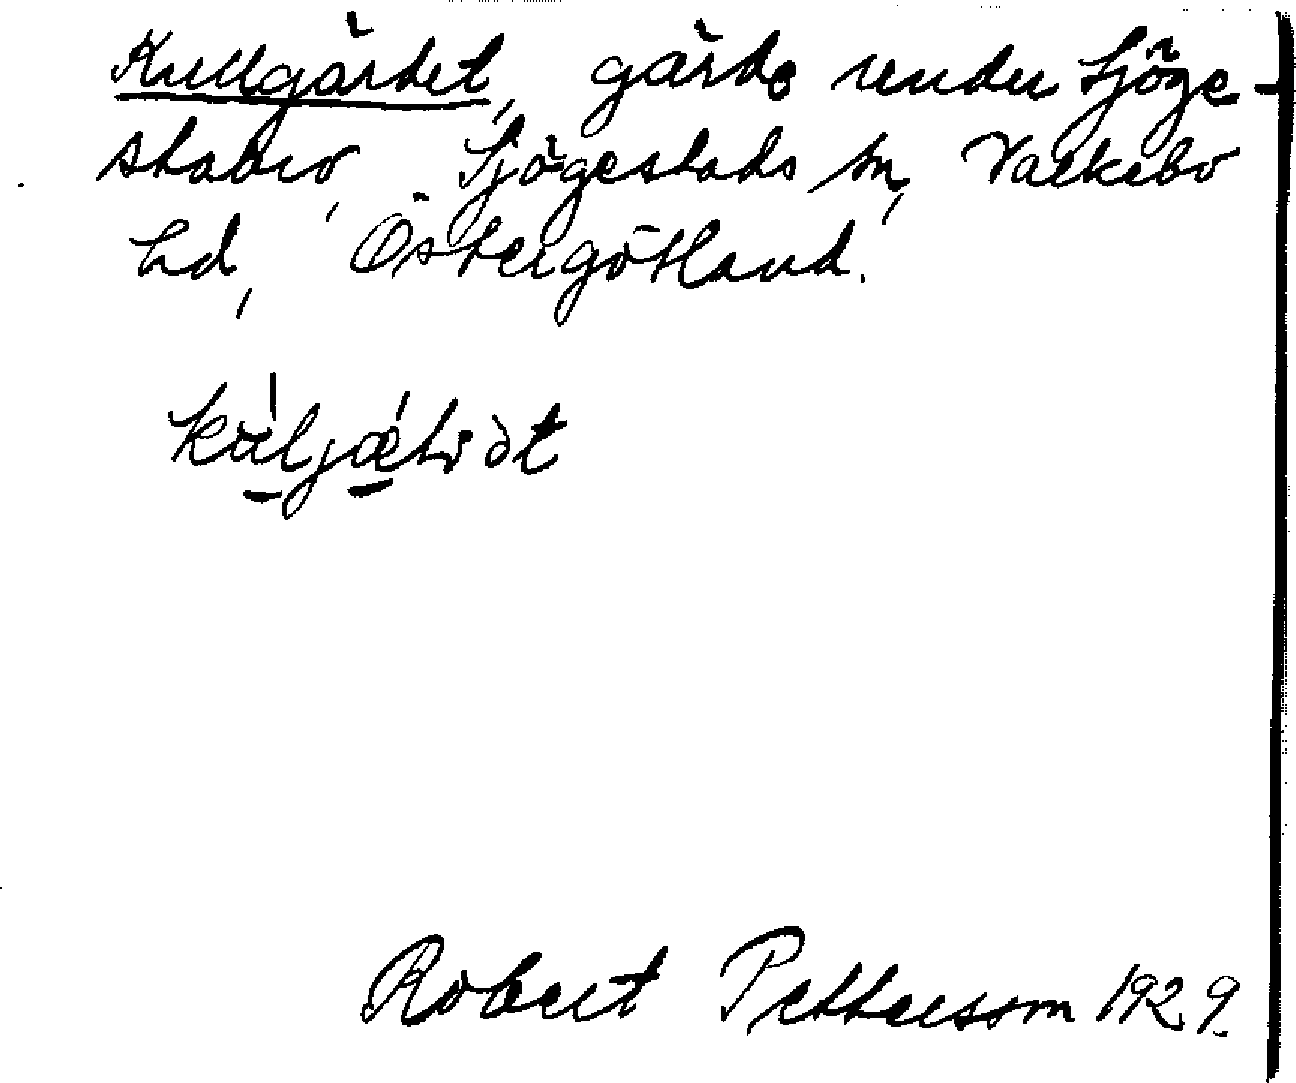 Kullgärdet, gärde under Sjöge-
stabro, Sjögestads sn, Valkebo
hd, Östergötland.
Robert Pettersson 1929.